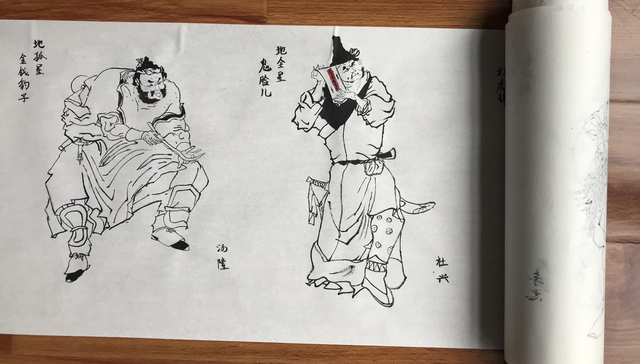 地全星
鬼脸儿
杜兴
地孤星
金钱豹子
汤隆